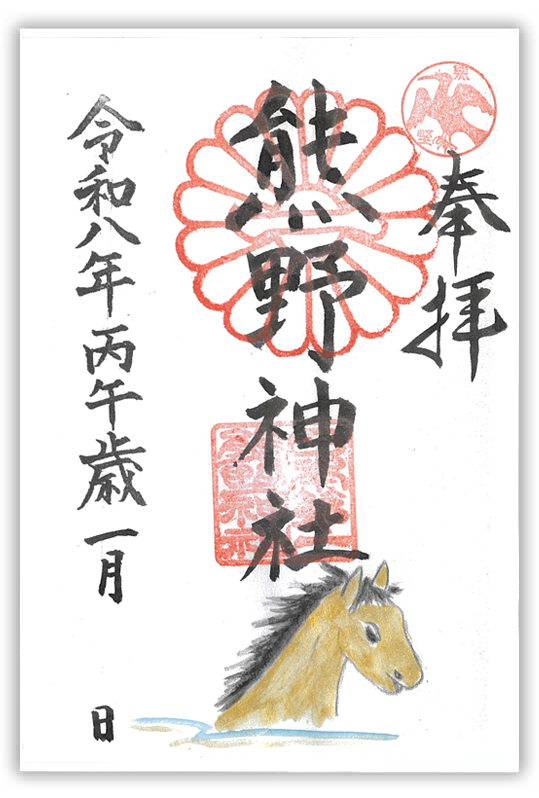 奉拝
熊野神社
令和八年丙午歳一月 日
熊野